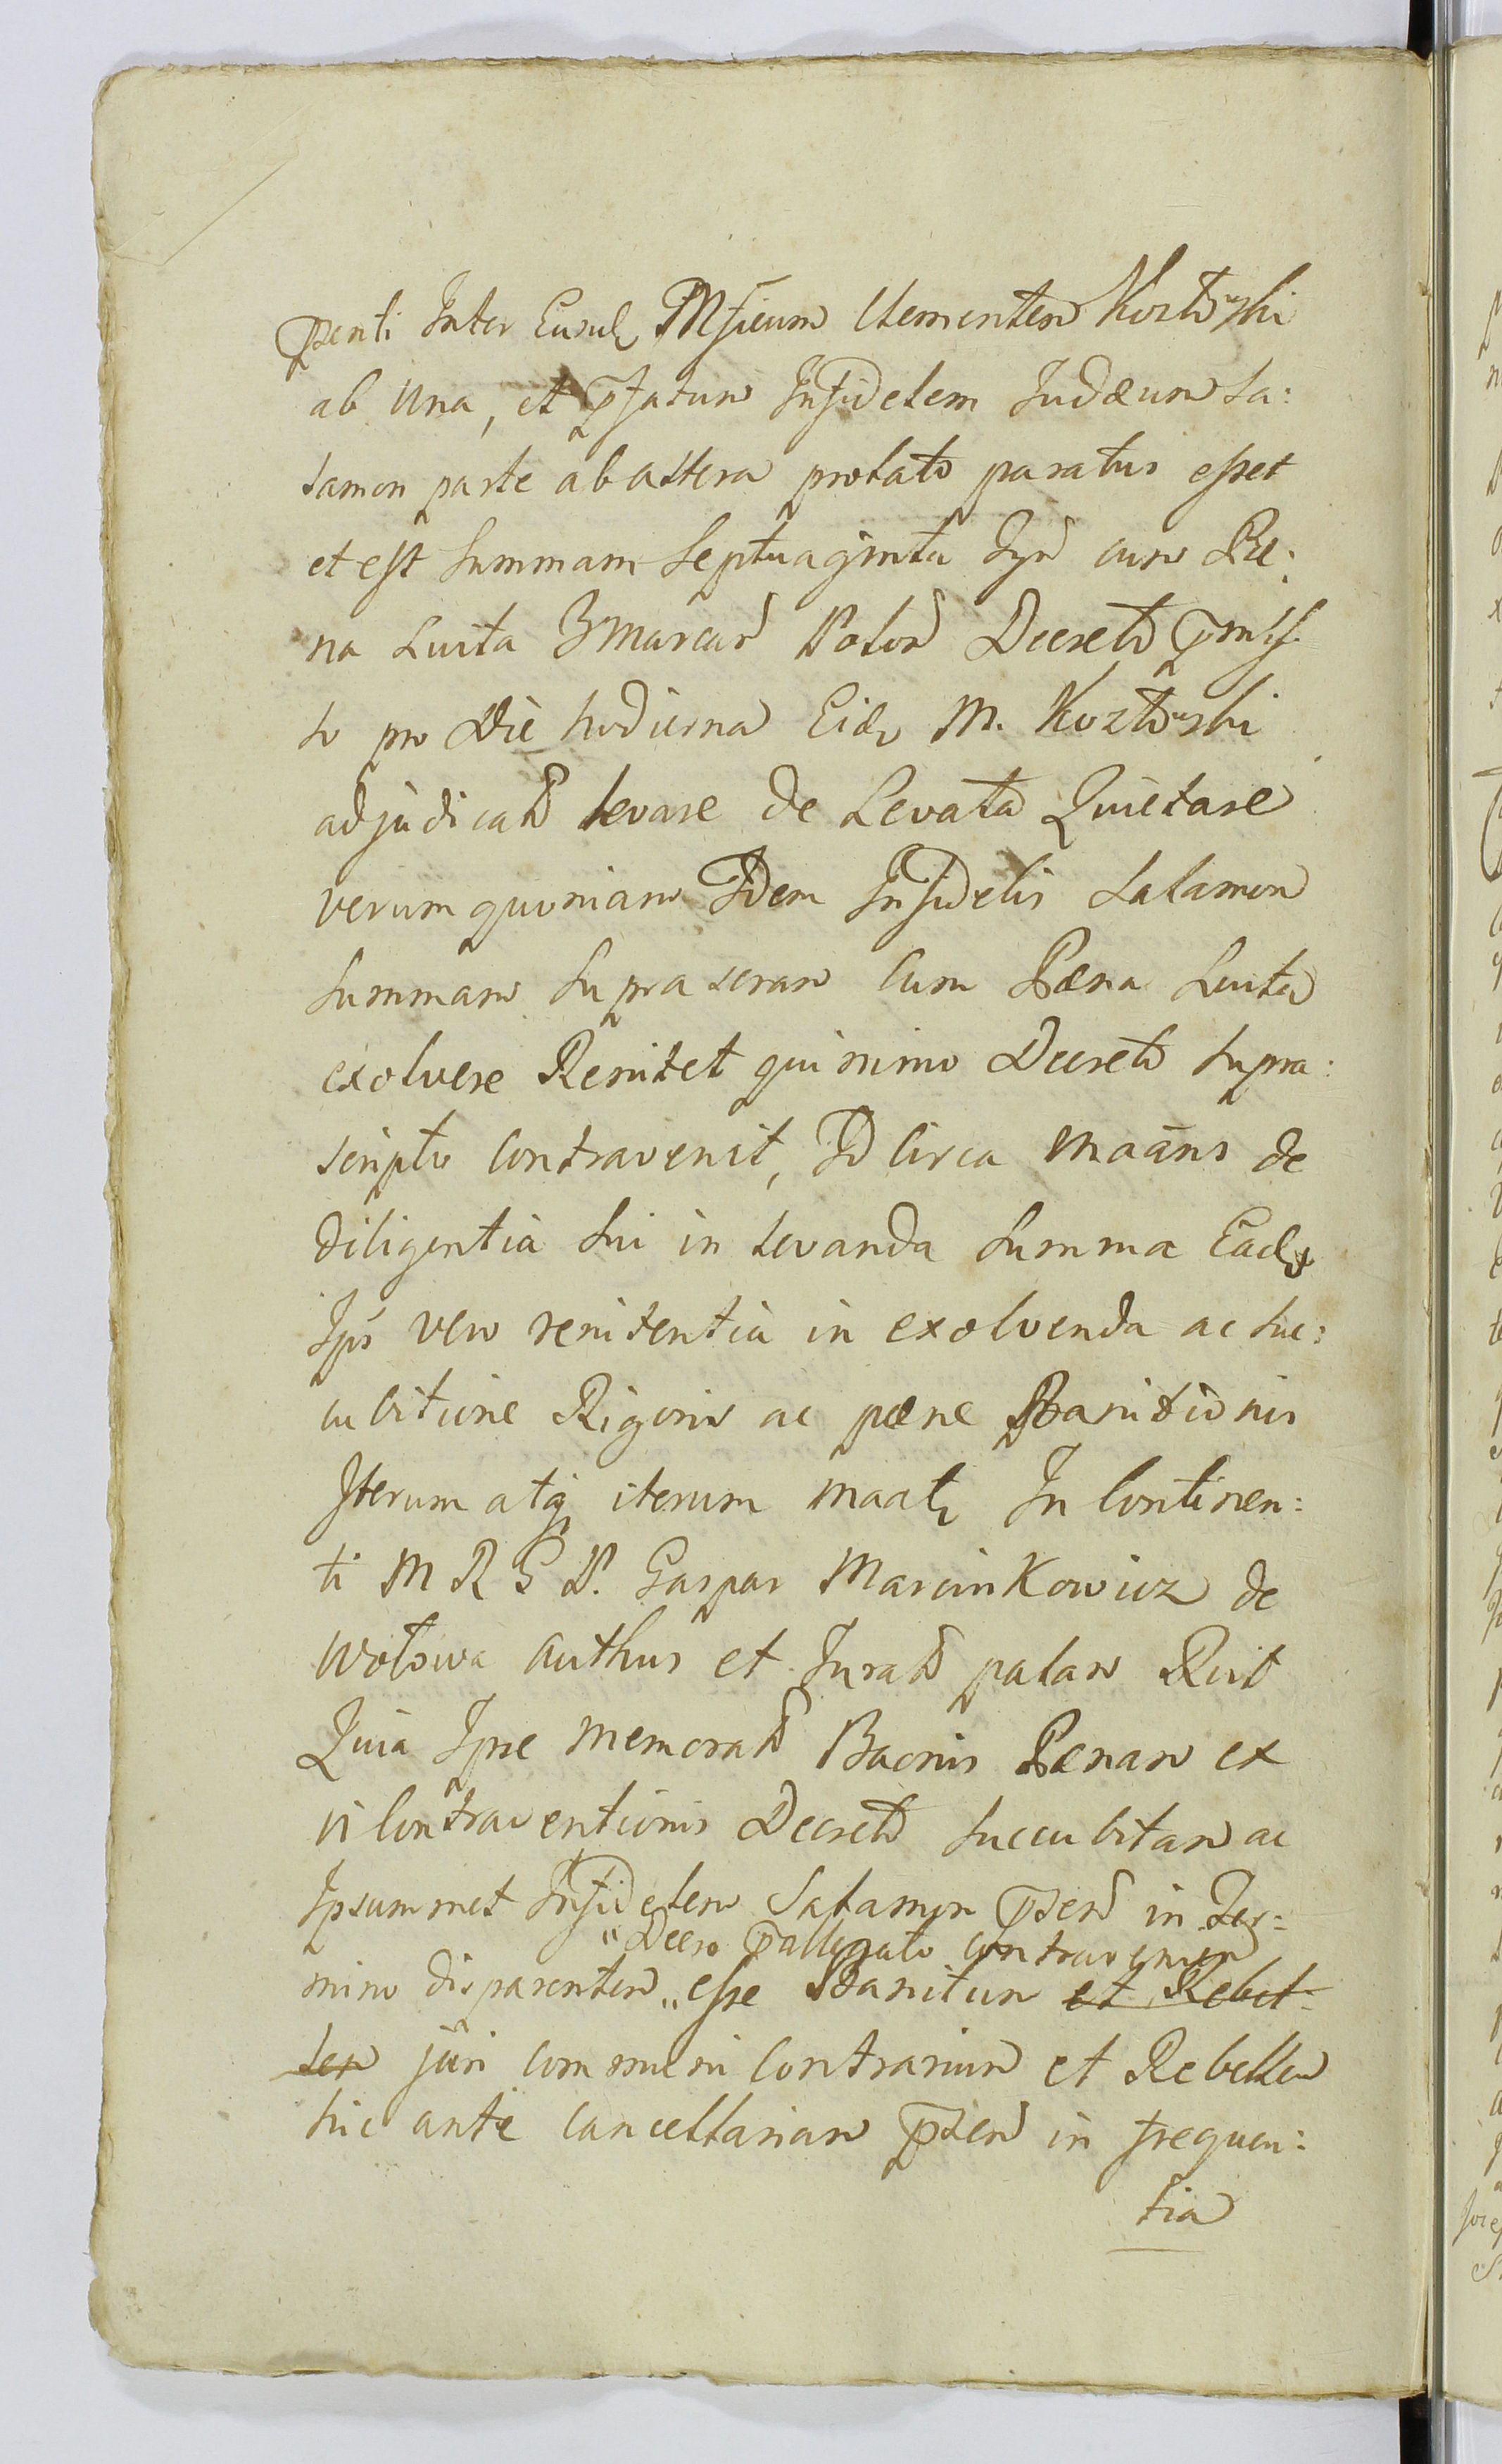 p̄senti Inter Eund M̄ficum Clementem Kozłowski
ab Una, et p̄fatum Infidelem Judæum Sa:
lamon parte ab altera prolato paratus esset
et est Summam Septuaginta Tyn̄ cum Pæ:
na Luita 3 marcar̄ Polon̄ Decreto p̄miss
so pro Die hodierna Eid M. Kozłowski
adjudicat̄ levare de Levata Quietare
verum quoniam Idem Infidelis Salamon
Summam Suprascram Cum Pæna Luita
exolvere Renitet quinimo Decreto Supra:
scripto Contravenit, Id Circa Maāns de
diligentia Sui in levanda Summa Ead
Ips̄ vero renitentia in exolvenda ac suc:
cubitione Rigoris ac pæne Banitionis
Iterum atq iterum maat In Continen:
ti M R G D. Gaspar Marcinkowicz de
Wołowa Authus et Jurat̄ palam Rcit
Quia Ipse memorat̄ Bacnis Pænam ex
vi Contraventionis Decreto Succubitam ac
Ipsummet Infidelem Salamon p̄sen̄ in Ter:
"Decro p̄allegato contravenien
mino disparentem „ esse Banitum et Rebel:
lem juri communi Contrarium et Rebellem
hic ante Cancellariam p̄sen̄ in frequen:
tia